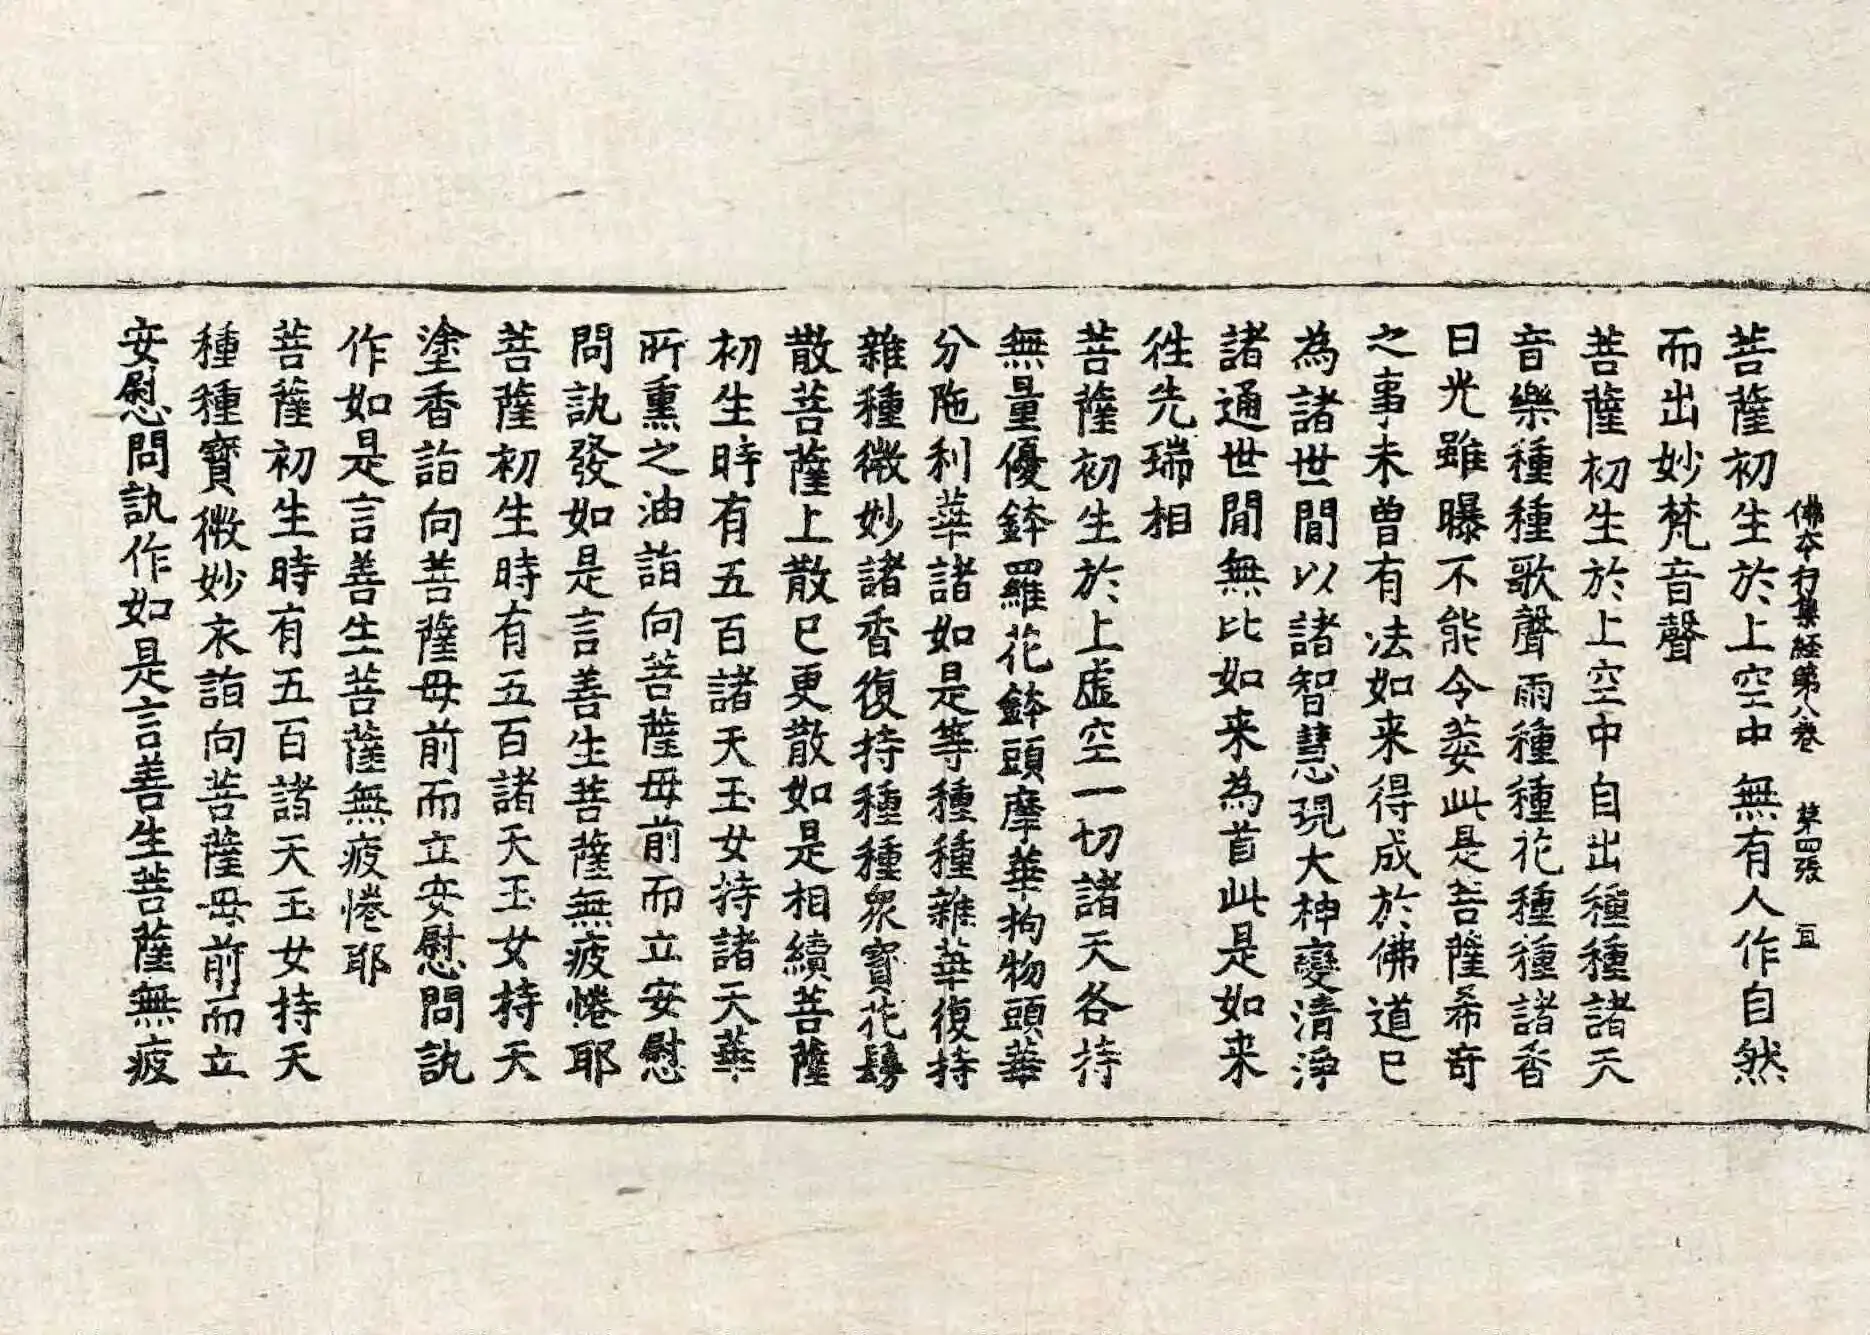 佛本行集経第八巻　第四張
菩薩初生於上空中無有人作自然
而出妙梵音聲
菩薩初生於上空中自出種種諸天
音樂種種歌聲雨種種花種種諸香
日光雖曝不能令萎此是菩薩希奇
之事未曾有法如来得成於佛道已
為諸世間以諸智慧現大神變清淨
諸通世間無比如来為首此是如来
徃先瑞相
菩薩初生於上虛空一切諸天各持
無量優鉢羅花鉢頭摩華拘物頭華
分陁利華諸如是等種種雜華復持
雜種微妙諸香復持種種眾寶花鬘
散菩薩上散已更散如是相續菩薩
初生時有五百諸天玉女持諸天華
所熏之油詣向菩薩母前而立安慰
問訊發如是言善生菩薩無疲惓耶
菩薩初生時有五百諸天玉女持天
塗香詣向菩薩母前而立安慰問訊
作如是言善生菩薩無疲惓耶
菩薩初生時有五百諸天玉女持天
種種寶微妙衣詣向菩薩母前而立
安慰問訊作如是言善生菩薩無疲